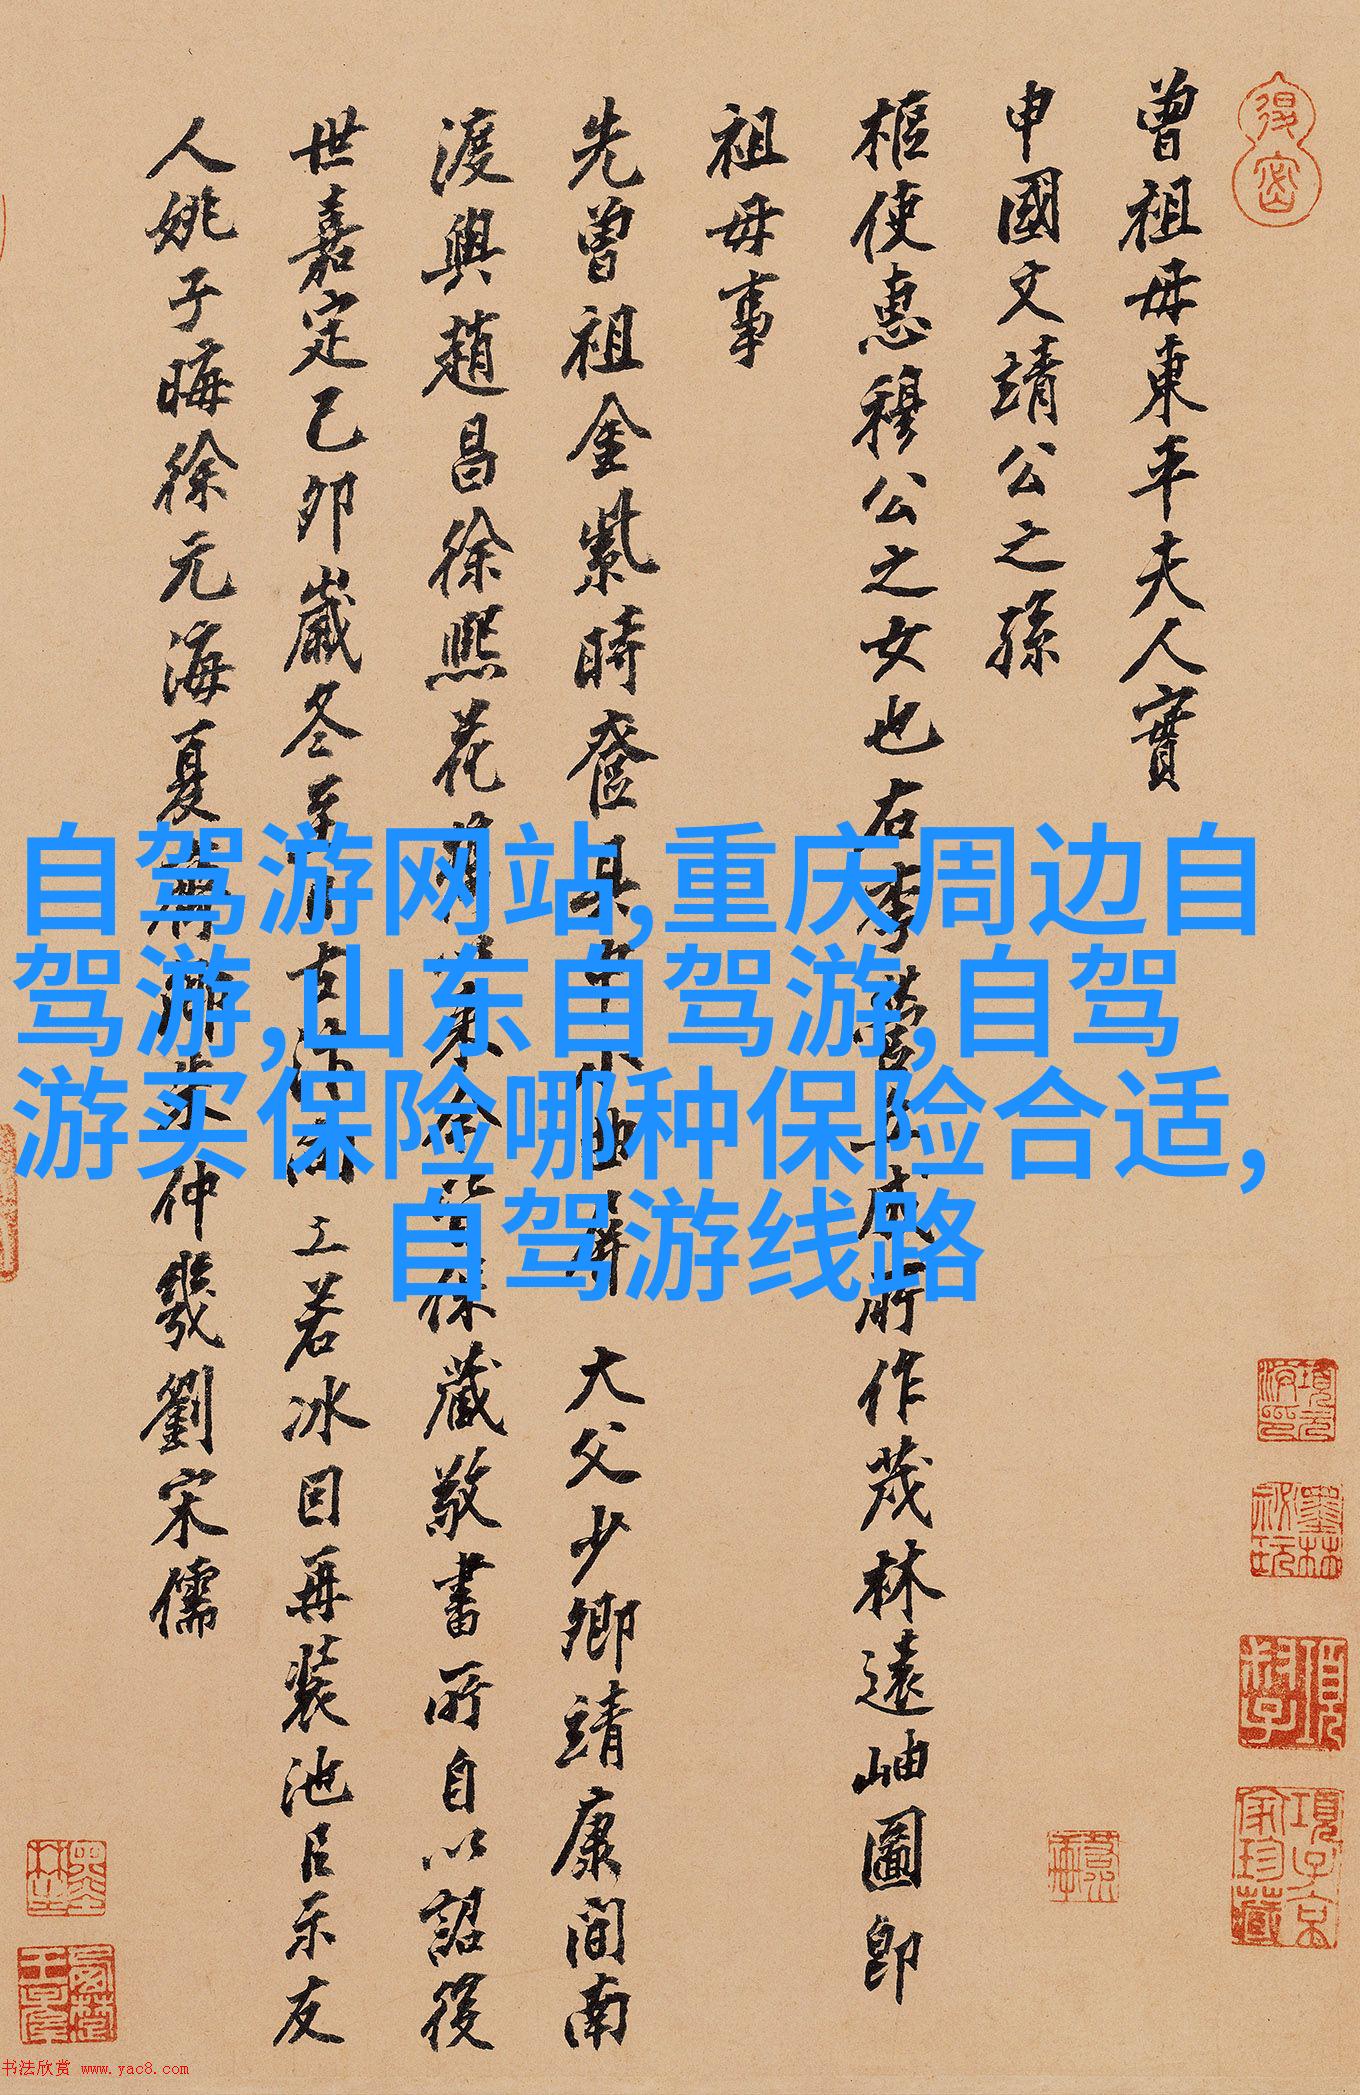 曾祖母東平夫人實
申國文靖公之孫
樞使惠穆公之女也右李營丘咸所作茂林遠岫圖即
祖母事
先曾祖金紫時奩具中小曲屏 大父少卿靖康間南
渡與趙昌徐熙花
藏敬書所自以詔後
世嘉定己卯歲冬至日古汴向水若冰因再裝池呂示友
人姚子晦徐元海夏
仲幾劉宋儒
自驾游网站,重庆周边自
驾游,山东自驾游,自驾
游买保险哪种保险合适,
自驾游线路
书法欣赏 www.yac8.com